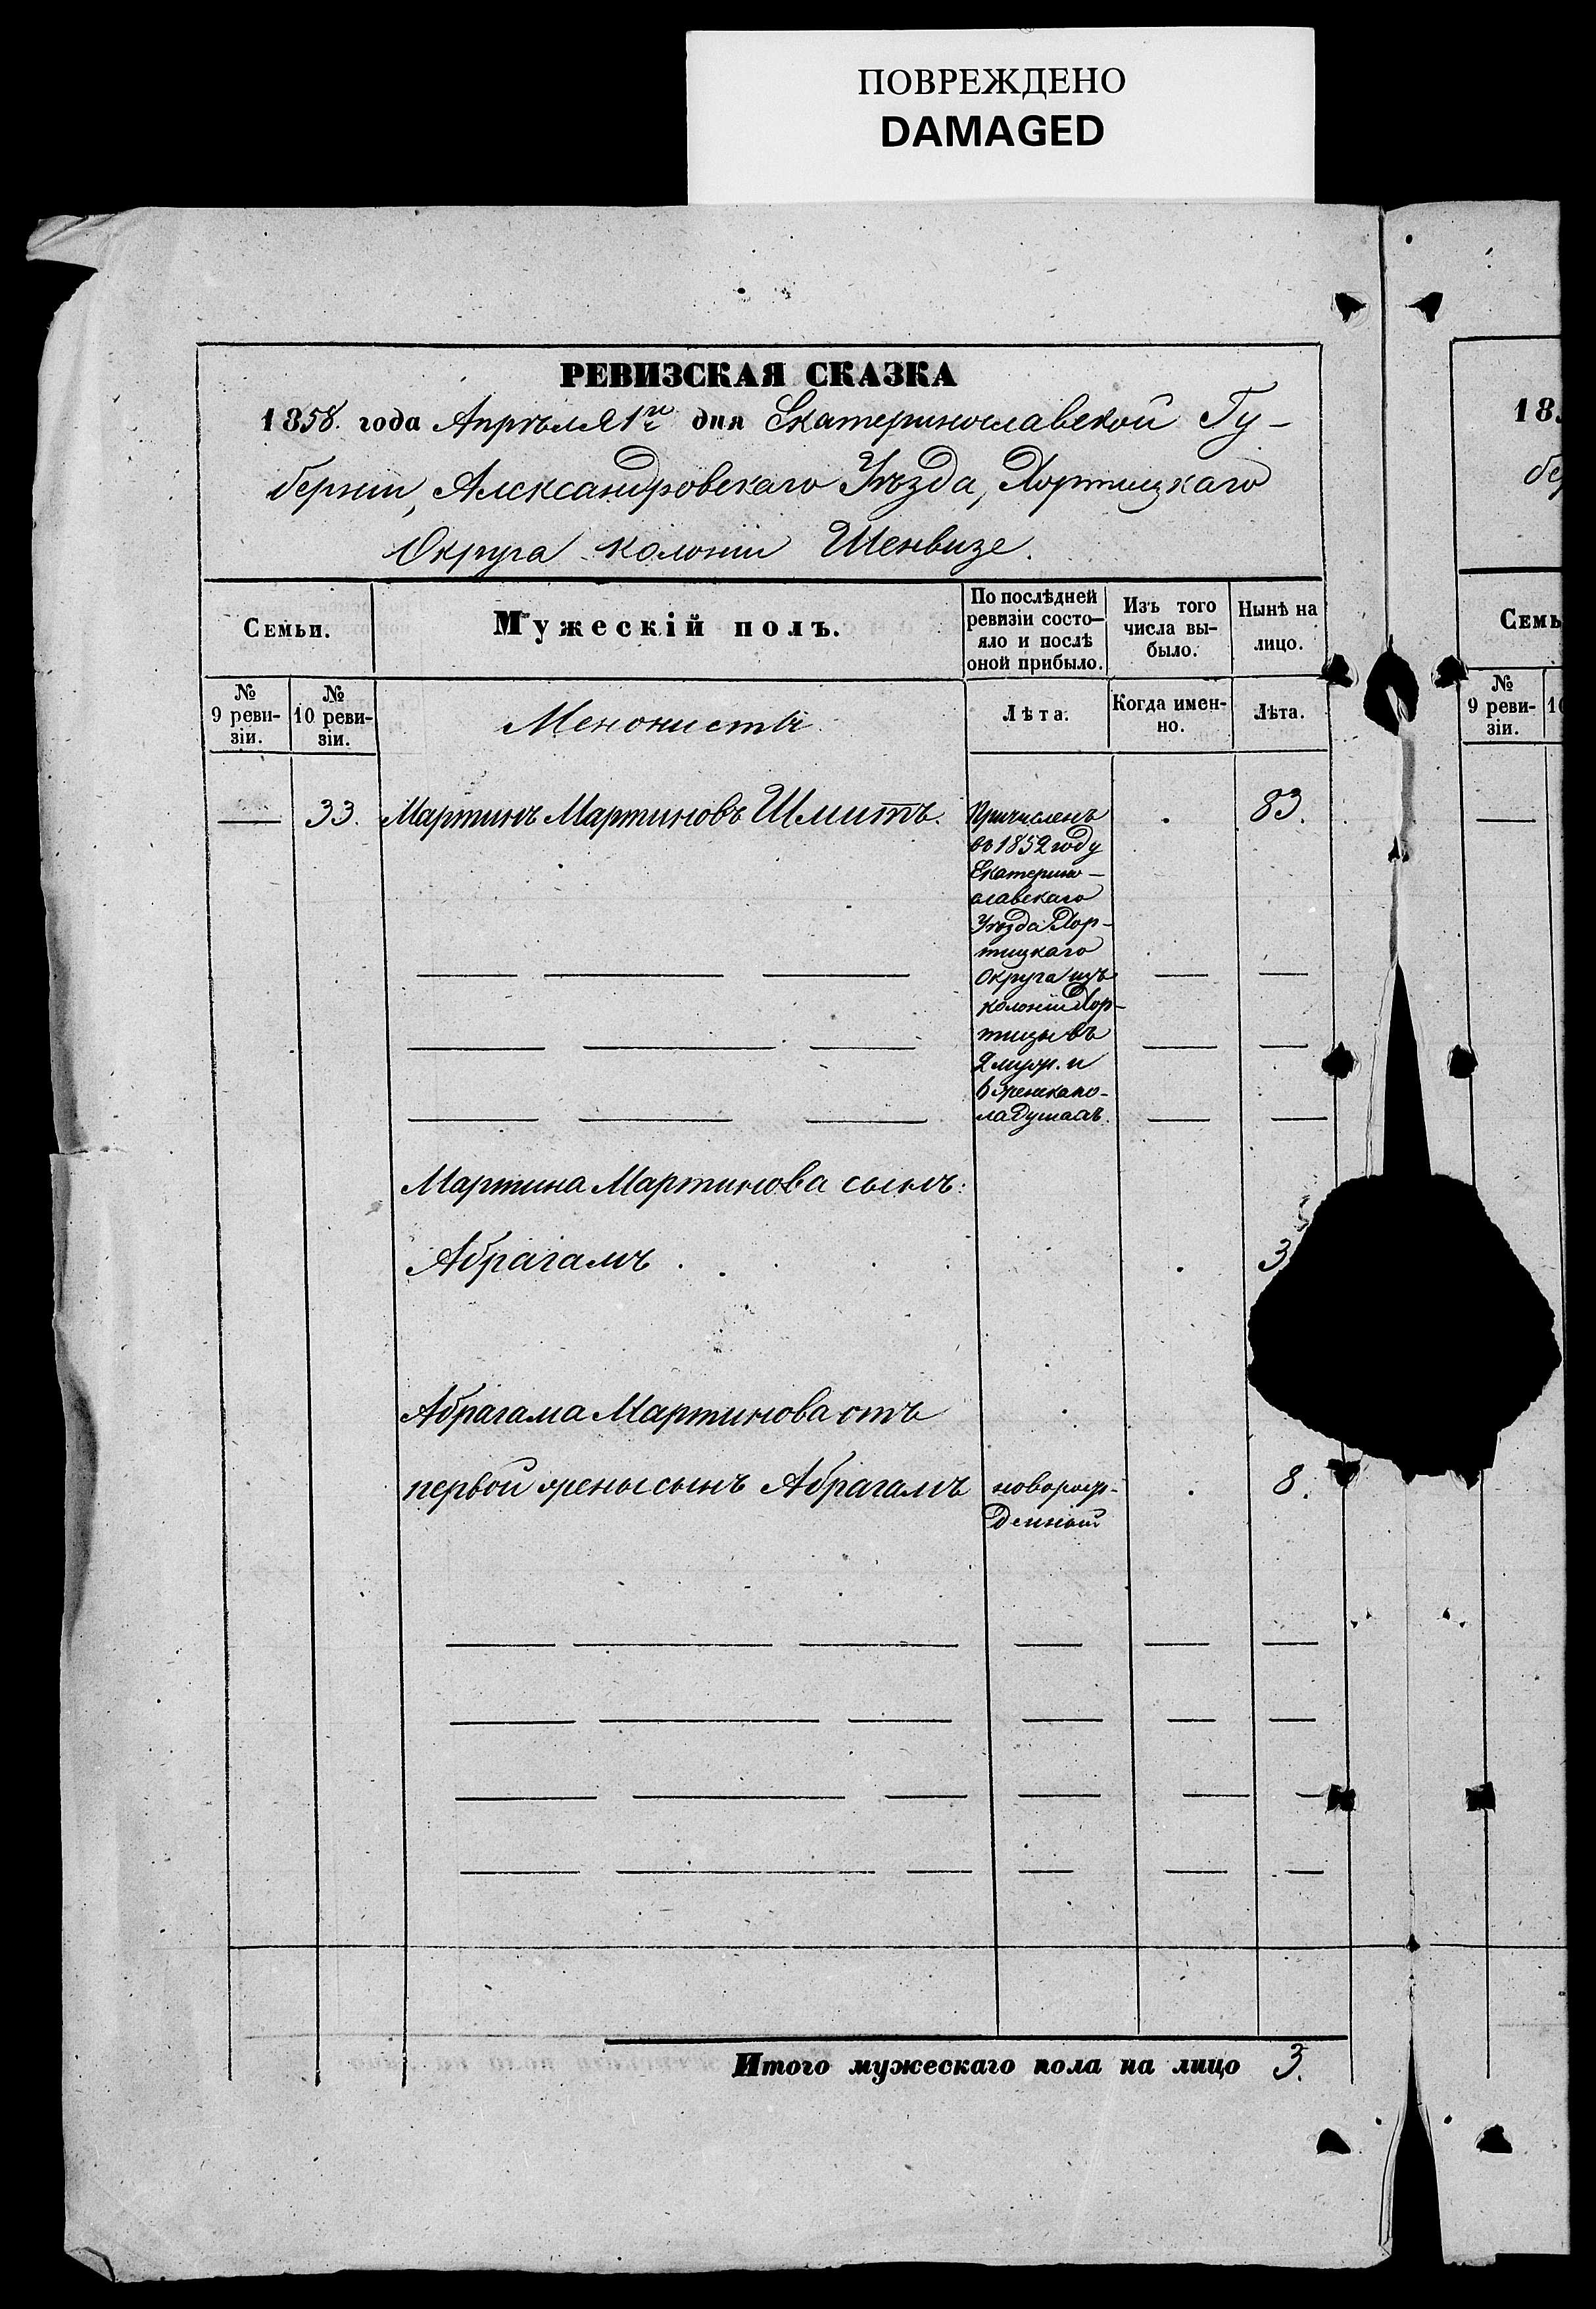 ПОВРЕЖДЕНО
DAMAGED
РЕВИЗСКАЯ СКАЗКА
1858. года Апрѣля 1го дня Екатеринославской Гу-
берніи, Александровскаго Уѣзда, Хортицкаго
Округа колоніи Шенвизе.
Семьи.
Мужескій полъ.
По послѣдней ревизіи состо-
яло и послѣ оной прибыло.
Изъ того числа вы-
было.
Нынѣ на лицо.
№ 9 реви-
зіи.
№ 10 реви-
зіи.
Менонисты
Лѣта.
Когда имен-
но.
Лѣта.
33. Мартинъ Мартиновъ Шмитъ. 83.
Причисленъ
въ 1852 году
Екатерино-
славскаго
Уѣзда Хор-
тицкаго
Округа изъ
колоніи Хор-
тицы въ
2 муж. и
6 женск. по-
ла душахъ.
Мартина Мартинова сынъ:
Абрагамъ 3
Абрагама Мартинова отъ
первой жены сынъ Абрагамъ новорож- 8.
денный
Итого мужескаго пола на лицо 3.
18
бе
Семь
№ 9 реви-
зіи.
1